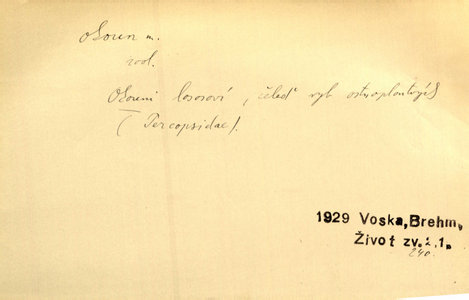 okoun m.
zool.
Okouni lososoví, čeleď ryb ostnoploutvých
(Percopsidae).
1929 Voska, Brehm,
Život zv. 2,1,
240.